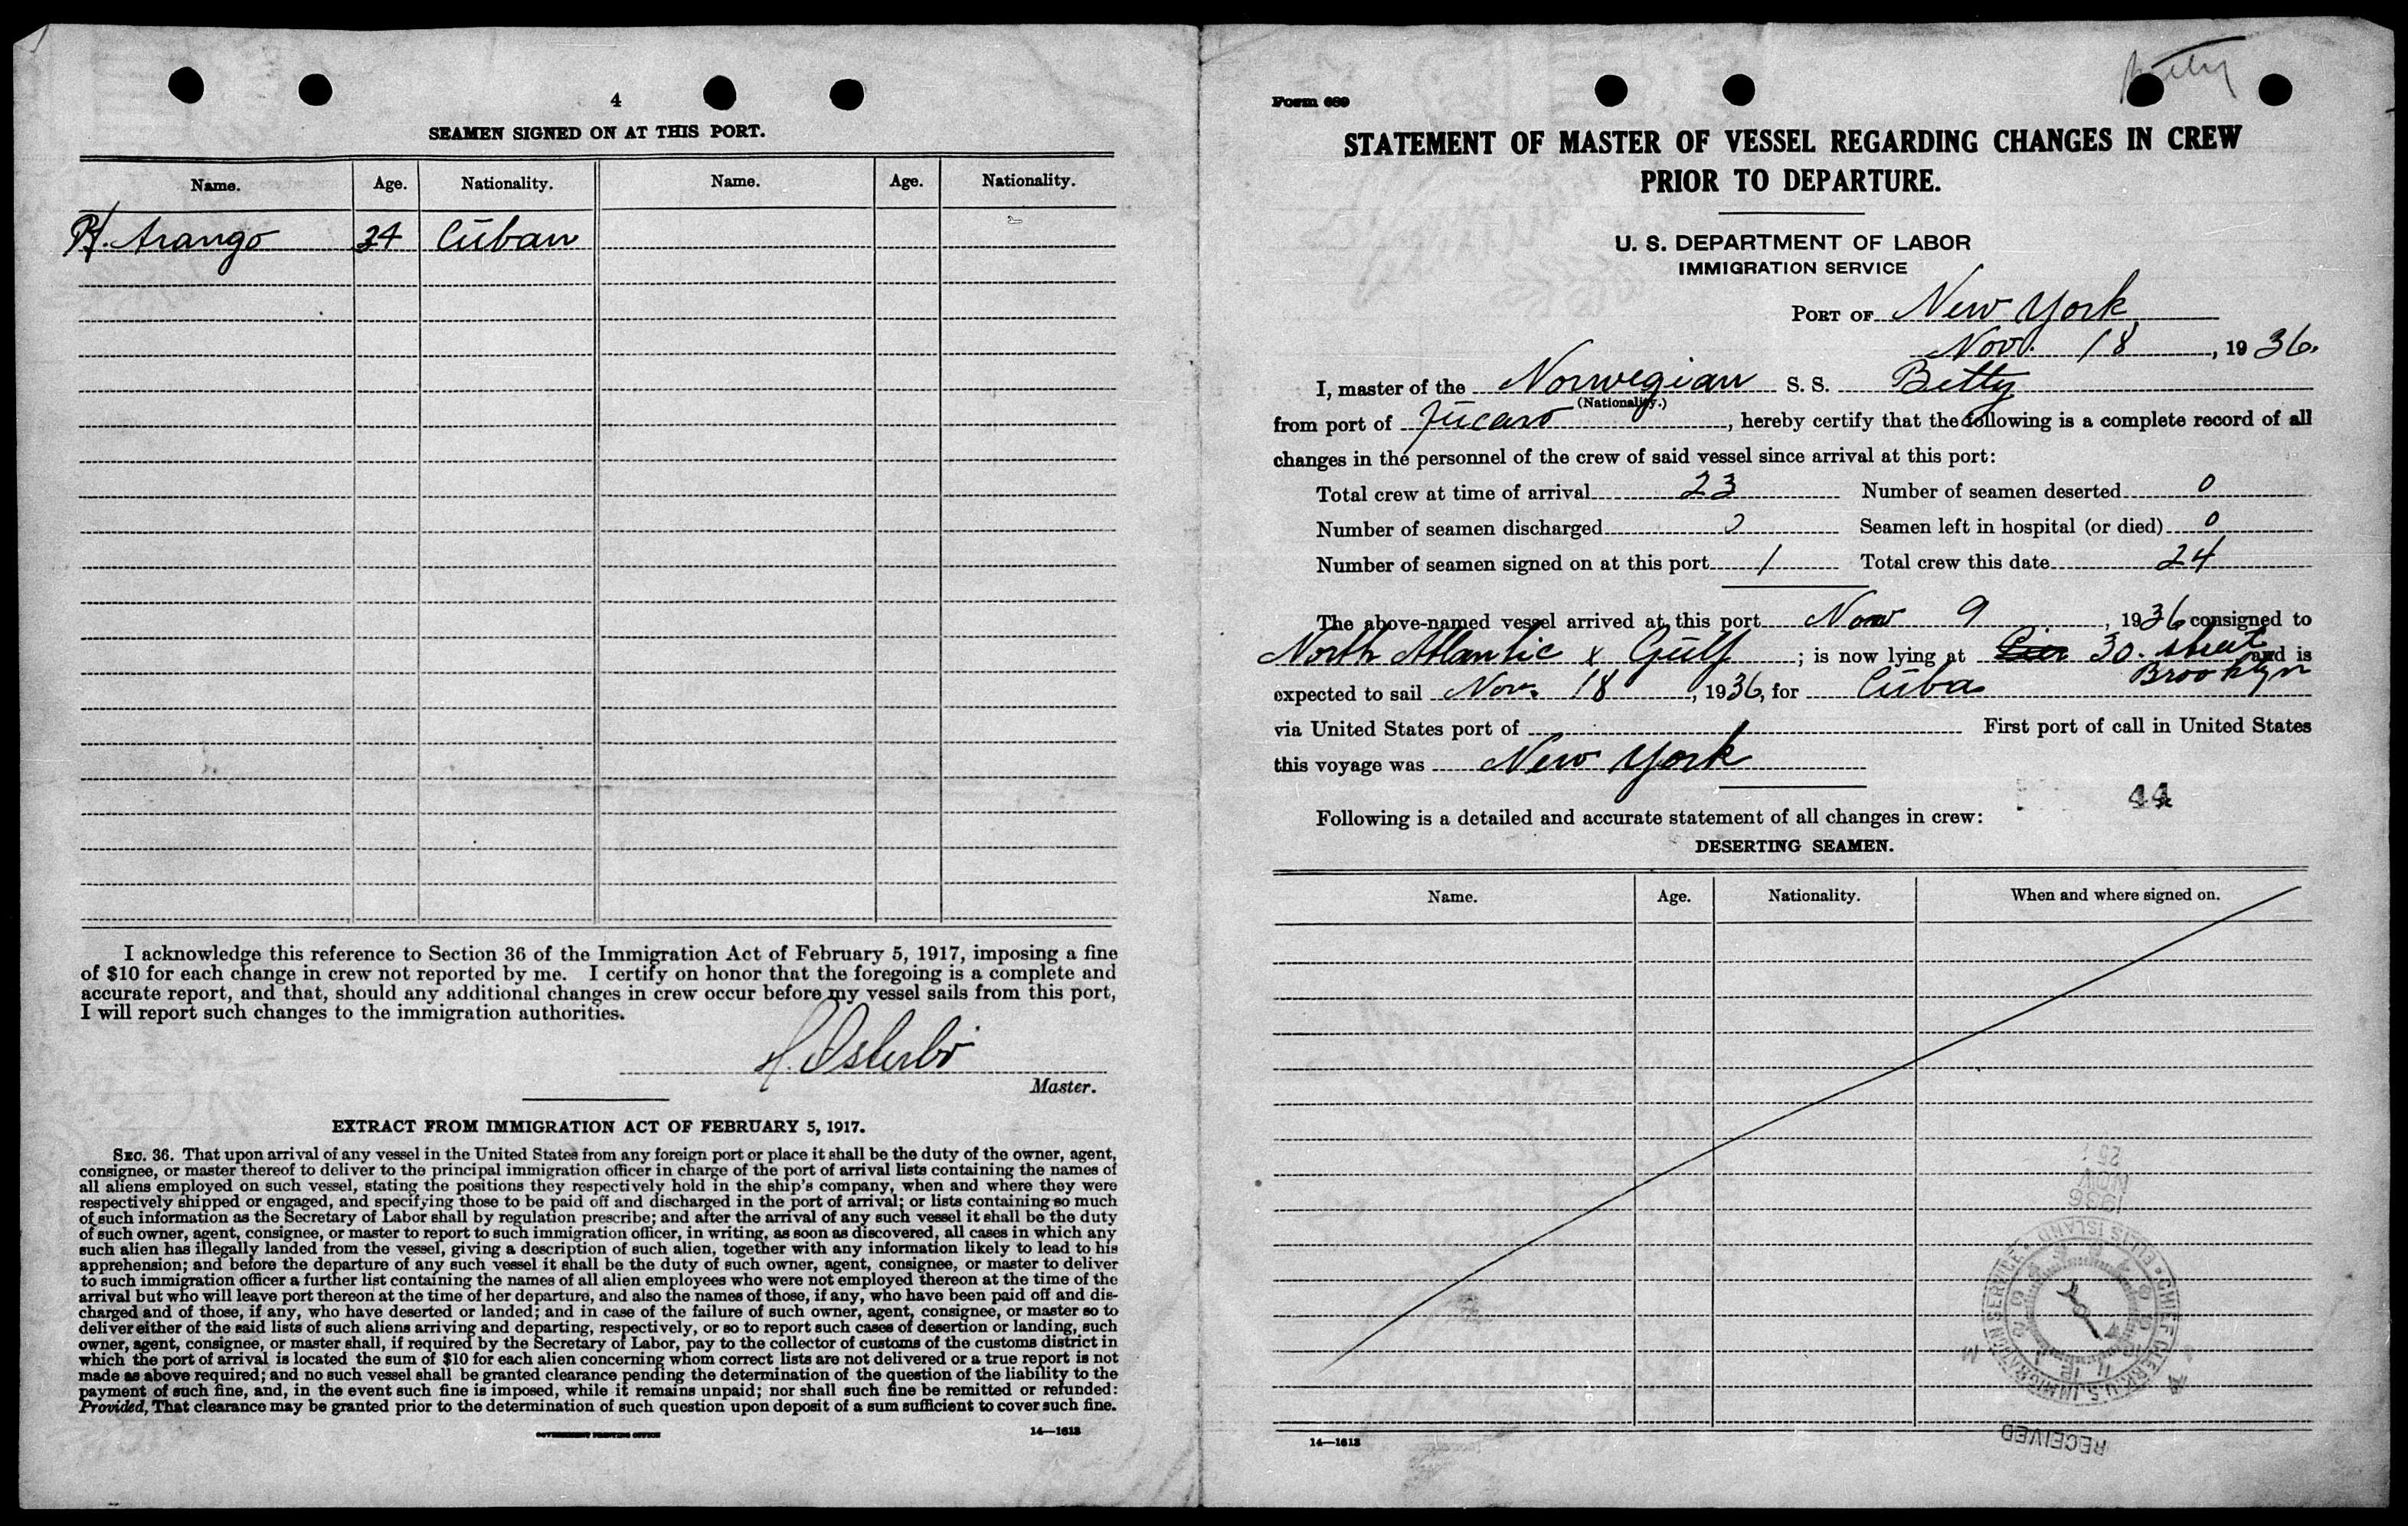 4
SEAMEN SIGNED ON AT THIS PORT.
Name. Age. Nationality. Name. Age. Nationality.
Arango 24 Cuban
I acknowledge this reference to Section 36 of the Immigration Act of February 5, 1917, imposing a fine
of $10 for each change in crew not reported by me. I certify on honor that the foregoing is a complete and
accurate report, and that, should any additional changes in crew occur before my vessel sails from this port,
I will report such changes to the immigration authorities.
Master.
EXTRACT FROM IMMIGRATION ACT OF FEBRUARY 5, 1917.
SEC. 36. That upon arrival of any vessel in the United States from any foreign port or place it shall be the duty of the owner, agent,
consignee, or master thereof to deliver to the principal immigration officer in charge of the port of arrival lists containing the names of
all aliens employed on such vessel, stating the positions they respectively hold in the ship's company, when and where they were
respectively shipped or engaged, and specifying those to be paid off and discharged in the port of arrival; or lists containing so much
of such information as the Secretary of Labor shall by regulation prescribe; and after the arrival of any such vessel it shall be the duty
of such owner, agent, consignee, or master to report to such immigration officer, in writing, as soon as discovered, all cases in which any
such alien has illegally landed from the vessel, giving a description of such alien, together with any information likely to lead to his
apprehension; and before the departure of any such vessel it shall be the duty of such owner, agent, consignee, or master to deliver
to such immigration officer a further list containing the names of all alien employees who were not employed thereon at the time of the
arrival but who will leave port thereon at the time of her departure, and also the names of those, if any, who have been paid off and dis-
charged and of those, if any, who have deserted or landed; and in case of the failure of such owner, agent, consignee, or master so to
deliver either of the said lists of such aliens arriving and departing, respectively, or so to report such cases of desertion or landing, such
owner, agent, consignee, or master shall, if required by the Secretary of Labor, pay to the collector of customs of the customs district in
which the port of arrival is located the sum of $10 for each alien concerning whom correct lists are not delivered or a true report is not
made as above required; and no such vessel shall be granted clearance pending the determination of the question of the liability to the
payment of such fine, and, in the event such fine is imposed, while it remains unpaid; nor shall such fine be remitted or refunded:
Provided, That clearance may be granted prior to the determination of such question upon deposit of a sum sufficient to cover such fine.
GOVERNMENT PRINTING OFFICE 14—1613
Betty
Form 689
STATEMENT OF MASTER OF VESSEL REGARDING CHANGES IN CREW
PRIOR TO DEPARTURE.
U. S. DEPARTMENT OF LABOR
IMMIGRATION SERVICE
PORT OF New York
Nov. 18, 1936.
I, master of the Norwegian S. S. Betty
(Nationality.)
from port of Jucaro, hereby certify that the following is a complete record of all
changes in the personnel of the crew of said vessel since arrival at this port:
Total crew at time of arrival 23 Number of seamen deserted 0
Number of seamen discharged 0 Seamen left in hospital (or died) 0
Number of seamen signed on at this port 1 Total crew this date 24
The above-named vessel arrived at this port Nov 9, 1936 consigned to
North Atlantic & Gulf; is now lying at Pier 30. street and is
Brooklyn
expected to sail Nov. 18, 1936, for Cuba
via United States port of First port of call in United States
this voyage was New York
44
Following is a detailed and accurate statement of all changes in crew:
DESERTING SEAMEN.
Name. Age. Nationality. When and where signed on.
1936
NOV
25
CHIEF CLERK, U.S. IMMIGRATION SERVICE • ELLIS ISLAND
RECEIVED
14—1613